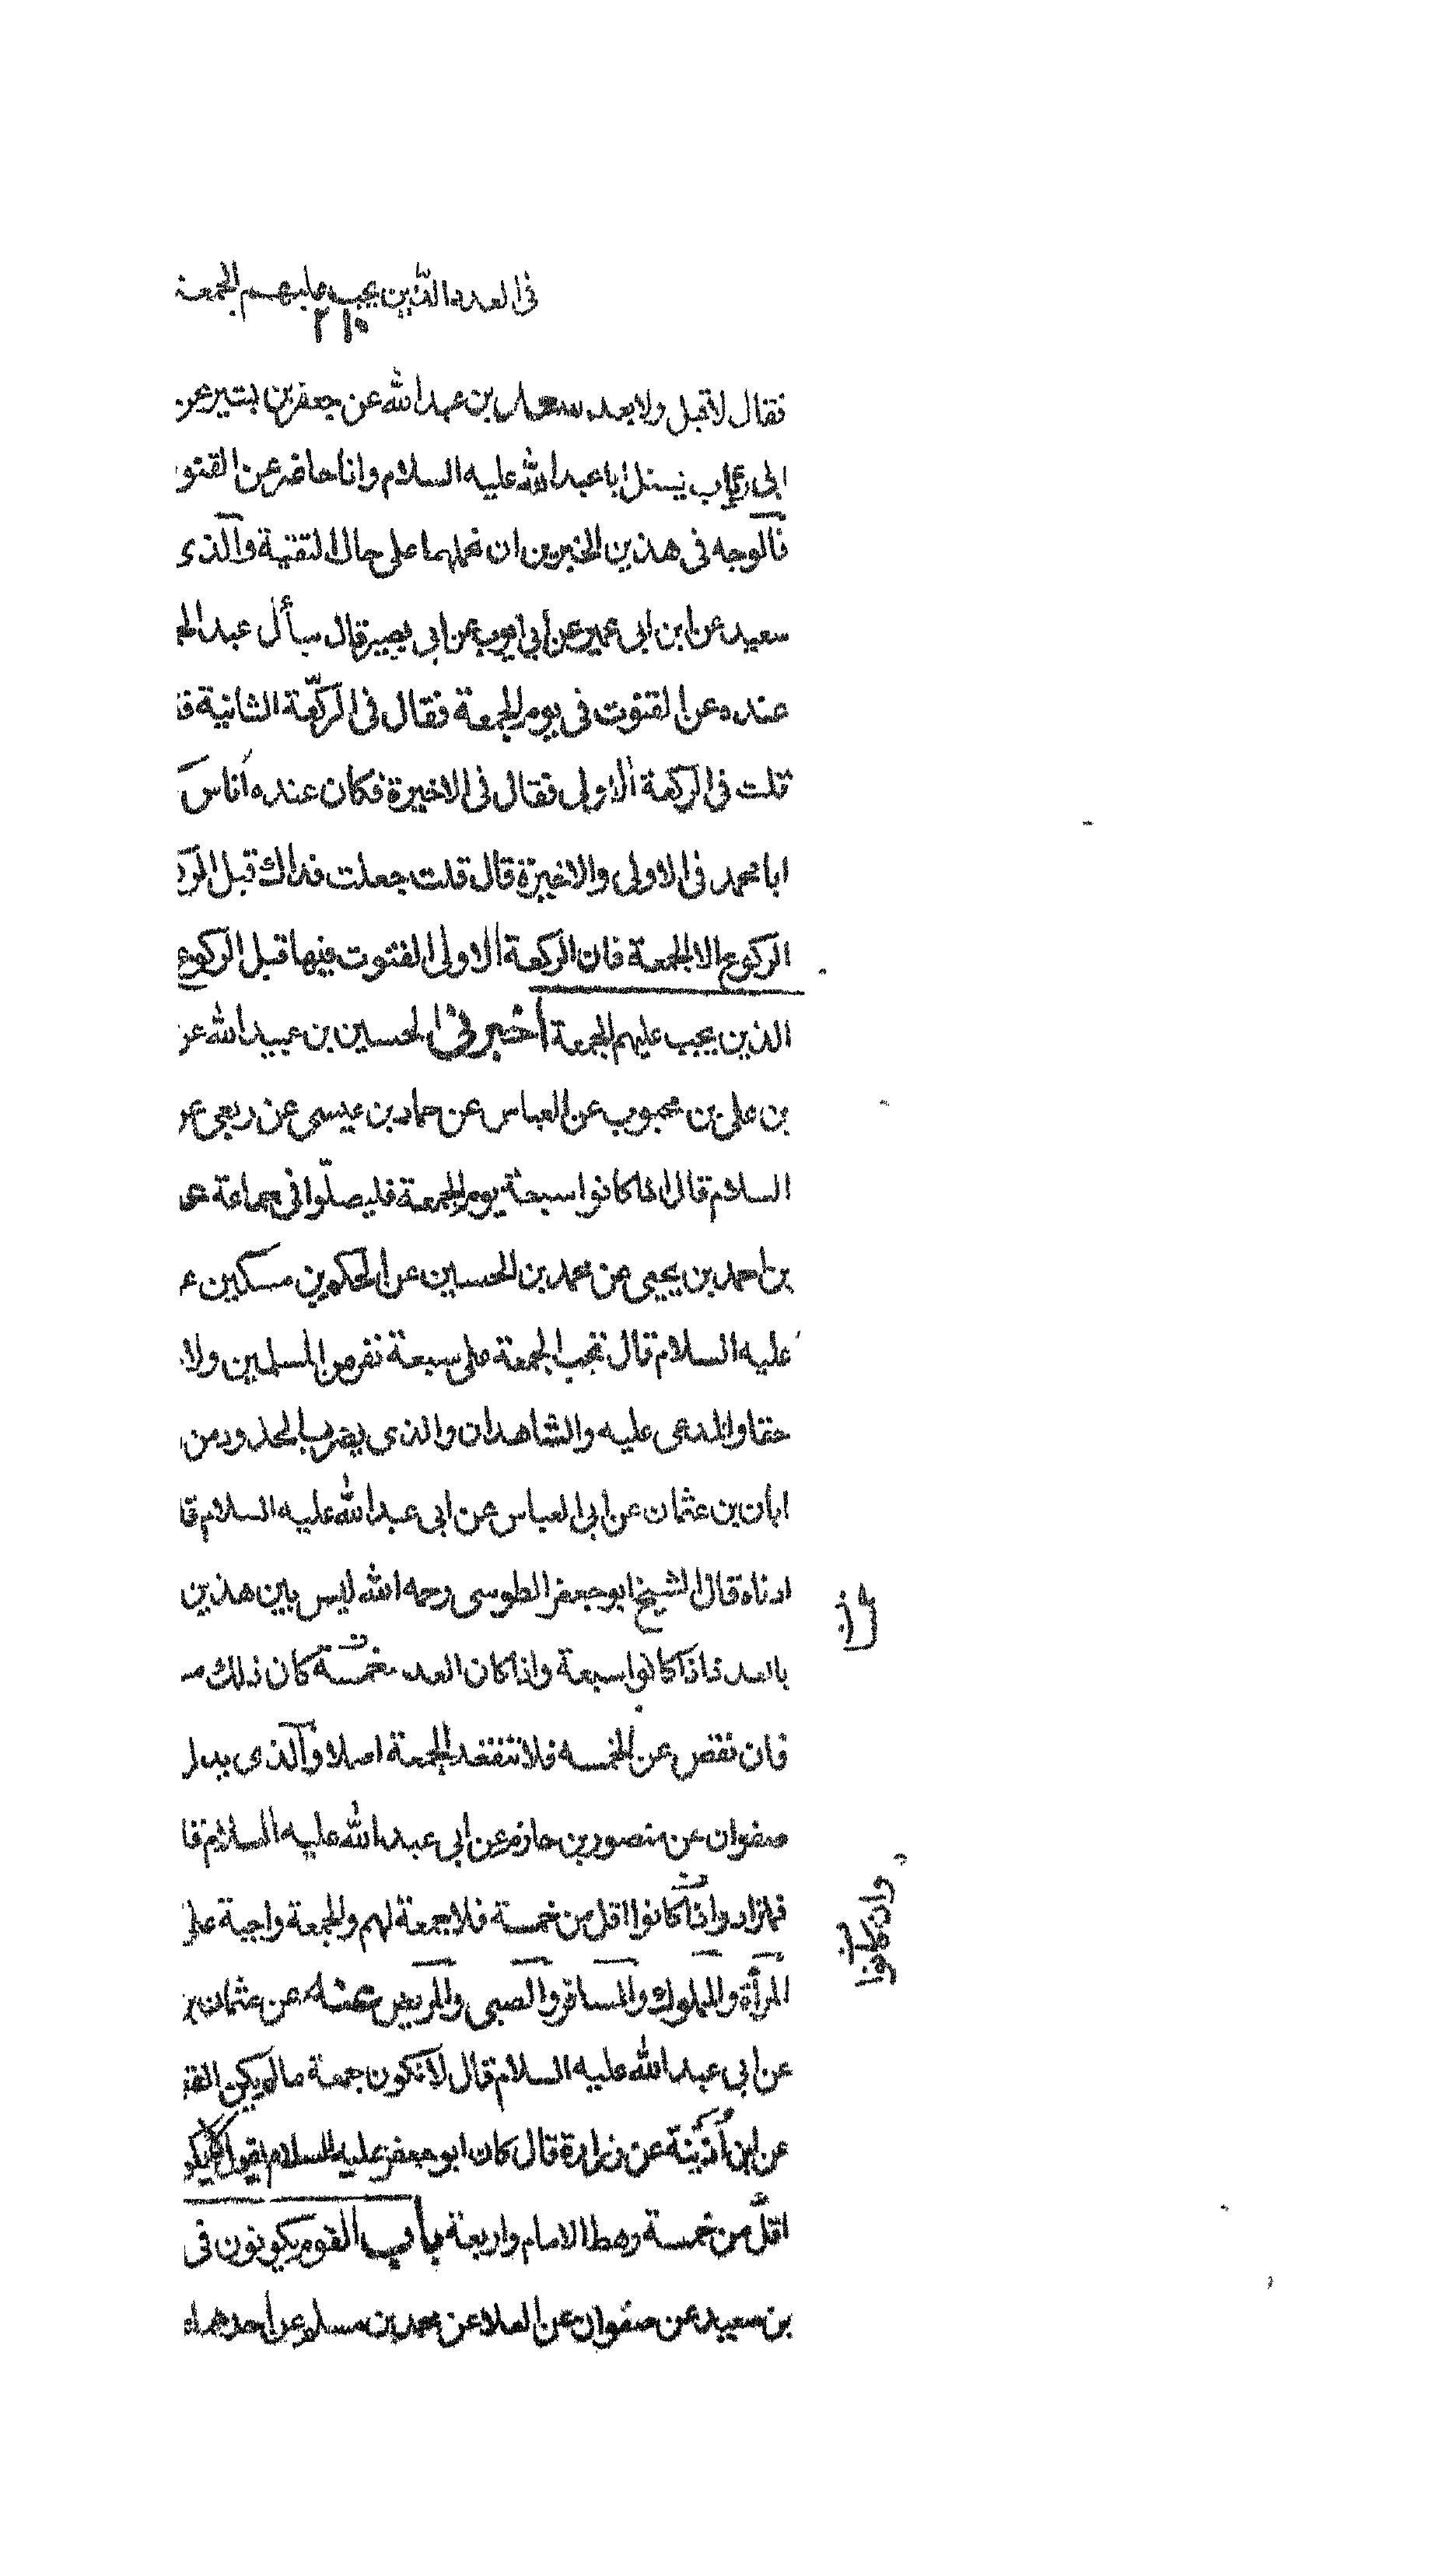 فى العدد الذين يجب عليهم الجمعة
٢١٠
فقال لا قبل ولا بعد سعد بن عبد الله عن جعفر بن بشير عن
ابى يسئل ابا عبد الله عليه السلام وانا حاضر عن القنو
فالوجه فى هذين الخبرين ان نحملهما على حال التقية والذى
سعيد عن ابن ابى عمير عن ابى ايوب عن ابى بصير قال سأل عبد الح
عنده عن القنوت فى يوم الجمعة فقال فى الركعة الثانية ف
قلت فى الركعة الاولى فقال فى الاخيرة فكان عنده اناس
ابا محمد فى الاولى والاخيرة قال قلت جعلت فداك قبل الرك
الركوع الا الجمعة فان الركعة الاولى القنوت فيها قبل الركوع
الذين يجب عليهم الجمعة أخبرنى الحسين بن عبيد الله عن
بن على بن محبوب عن العباس عن حماد بن عيسى عن ربعى عن
السلام قال اذا كانوا سبعة يوم الجمعة فليصلّوا فى جماعة
بن احمد بن يحيى عن محمد بن الحسين عن الحكم بن مسكين ع
عليه السلام قال تجب الجمعة على سبعة نفر من المسلمين ولا
حقا والمدعى عليه والشاهدان والذى يضرب الحدود من
ابان بن عثمان عن ابى العباس عن ابى عبد الله عليه السلام قا
ادناه قال الشيخ ابو جعفر الطوسى رحمه الله ليس بين هذين
بالعدد فاذا كانوا سبعة واذا كان العدد خمسة كان ذلك م
فان نقص عن الخمسه فلا تنعقد الجمعة اصلا والذى يدل
صفوان عن منصور بن حازم عن ابى عبد الله عليه السلام قا
فما زاد واذا كانوا اقل من خمسة فلا جمعة لهم والجمعة واجبة على
وان كانوا
المرأة والمملوك والمسافر والصبى والمريض عنه عن عثمان ب
عن ابى عبد الله عليه السلام قال لا تكون جمعة ما لم يكن القو
عن ابن اذينة عن زرارة قال كان ابو جعفر عليه السلام يقول لا يكو
اقلّ من خمسة رهط الامام واربعة باب القوم يكونون فى
بن سعيد عن صفوان عن العلا عن محمد بن مسلم عن احدهما